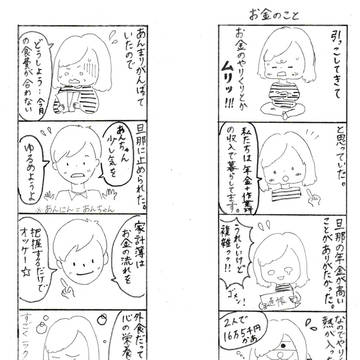 お金のこと
引っこしてきて
お金のやりくりとか
ムリッ!!!
と思っていた。
私たちは年金+作業所
の収入で暮らしてます。
旦那の年金が高い
ことがありがたかった。
うれしいけど
複雑っ!!
ゴメン!
なのでやり
熱が入っ
2人で
16万5千円か
あ
あんまりがんばって
いたので
どうしよう…今月
の食費が合わない
旦那に止められた。
あんちゃん
少し気を
ゆるめようよ
※あんこん=あんちゃん
家計簿は
お金の流れを
把握するだけで
オッケー☆
外食だって
心の栄養
すごくラク